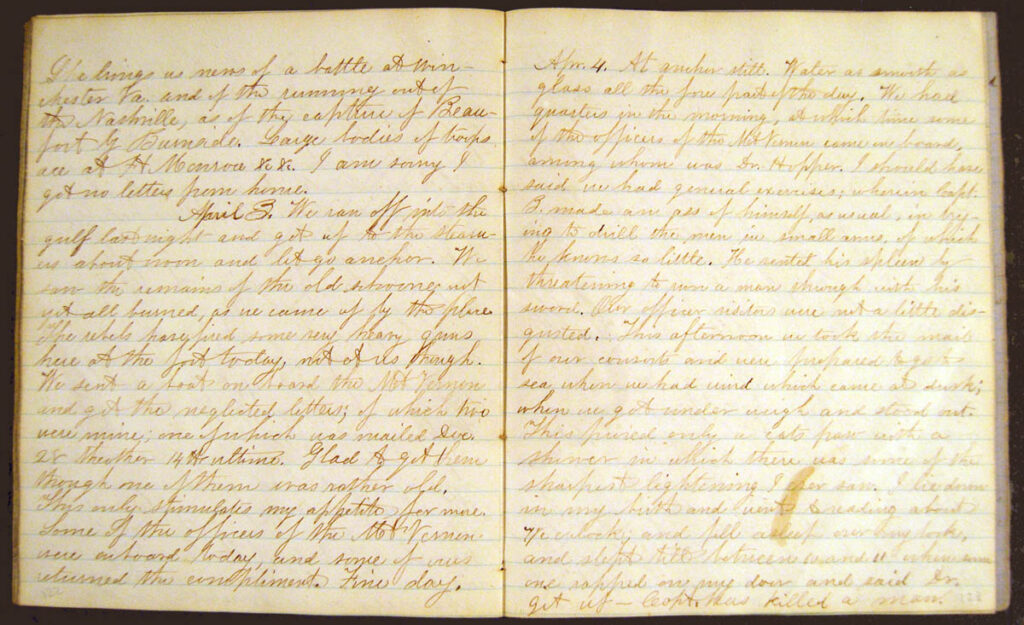 She brings us news of a battle at Win-
chester Va. and of the running out of
the Nashville, as of the capture of Beau-
fort by Burnside. Large bodies of troops
are at Ft Monroe &c &c. I am sorry I
got no letters from home.
April 3. We ran off into the
gulf last night and got up to the steam-
ers about noon and let go anchor. We
saw the remains of the old schooner not
yet all burned, as we came up by the place.
The rebels have fired some very heavy guns
here at the fort today, not at us though.
We sent a boat on board the Mt Vernon
and got the neglected letters; of which two
were mine; one of which was mailed Dec.
28 the other 14th ultimo. Glad to get them
though one of them was rather old.
This only stimulates my appetite for more.
Some of the officers of the Mt Vernon
were on board today, and some of ours
returned the compliment. Fine day.
Apr. 4. At anchor still. Water as smooth as
glass all the fore part of the day. We had
quarters in the morning, at which time some
of the officers of the Mt Vernon came on board,
among whom was Dr. Hopper. I should have
said we had general exercises; wherein Capt.
B. made an ass of himself, as usual, in try-
ing to drill the men in small arms, of which
he knows so little. He vented his spleen by
threatening to run a man through with his
sword. Our officer visitors were not a little dis-
gusted. This afternoon we took the mail
of our consorts and were prepared to go to
sea when we had wind which came at dusk;
when we got under weigh and stood out.
This proved only a cats paw with a
shower in which there was some of the
sharpest lightening I ever saw. I lie down
in my birth and went to reading about
7 o'clock; and fell asleep over my book,
and slept till between 10 and 11 when some
one rapped on my door and said Dr.
get up — Capt. has killed a man.